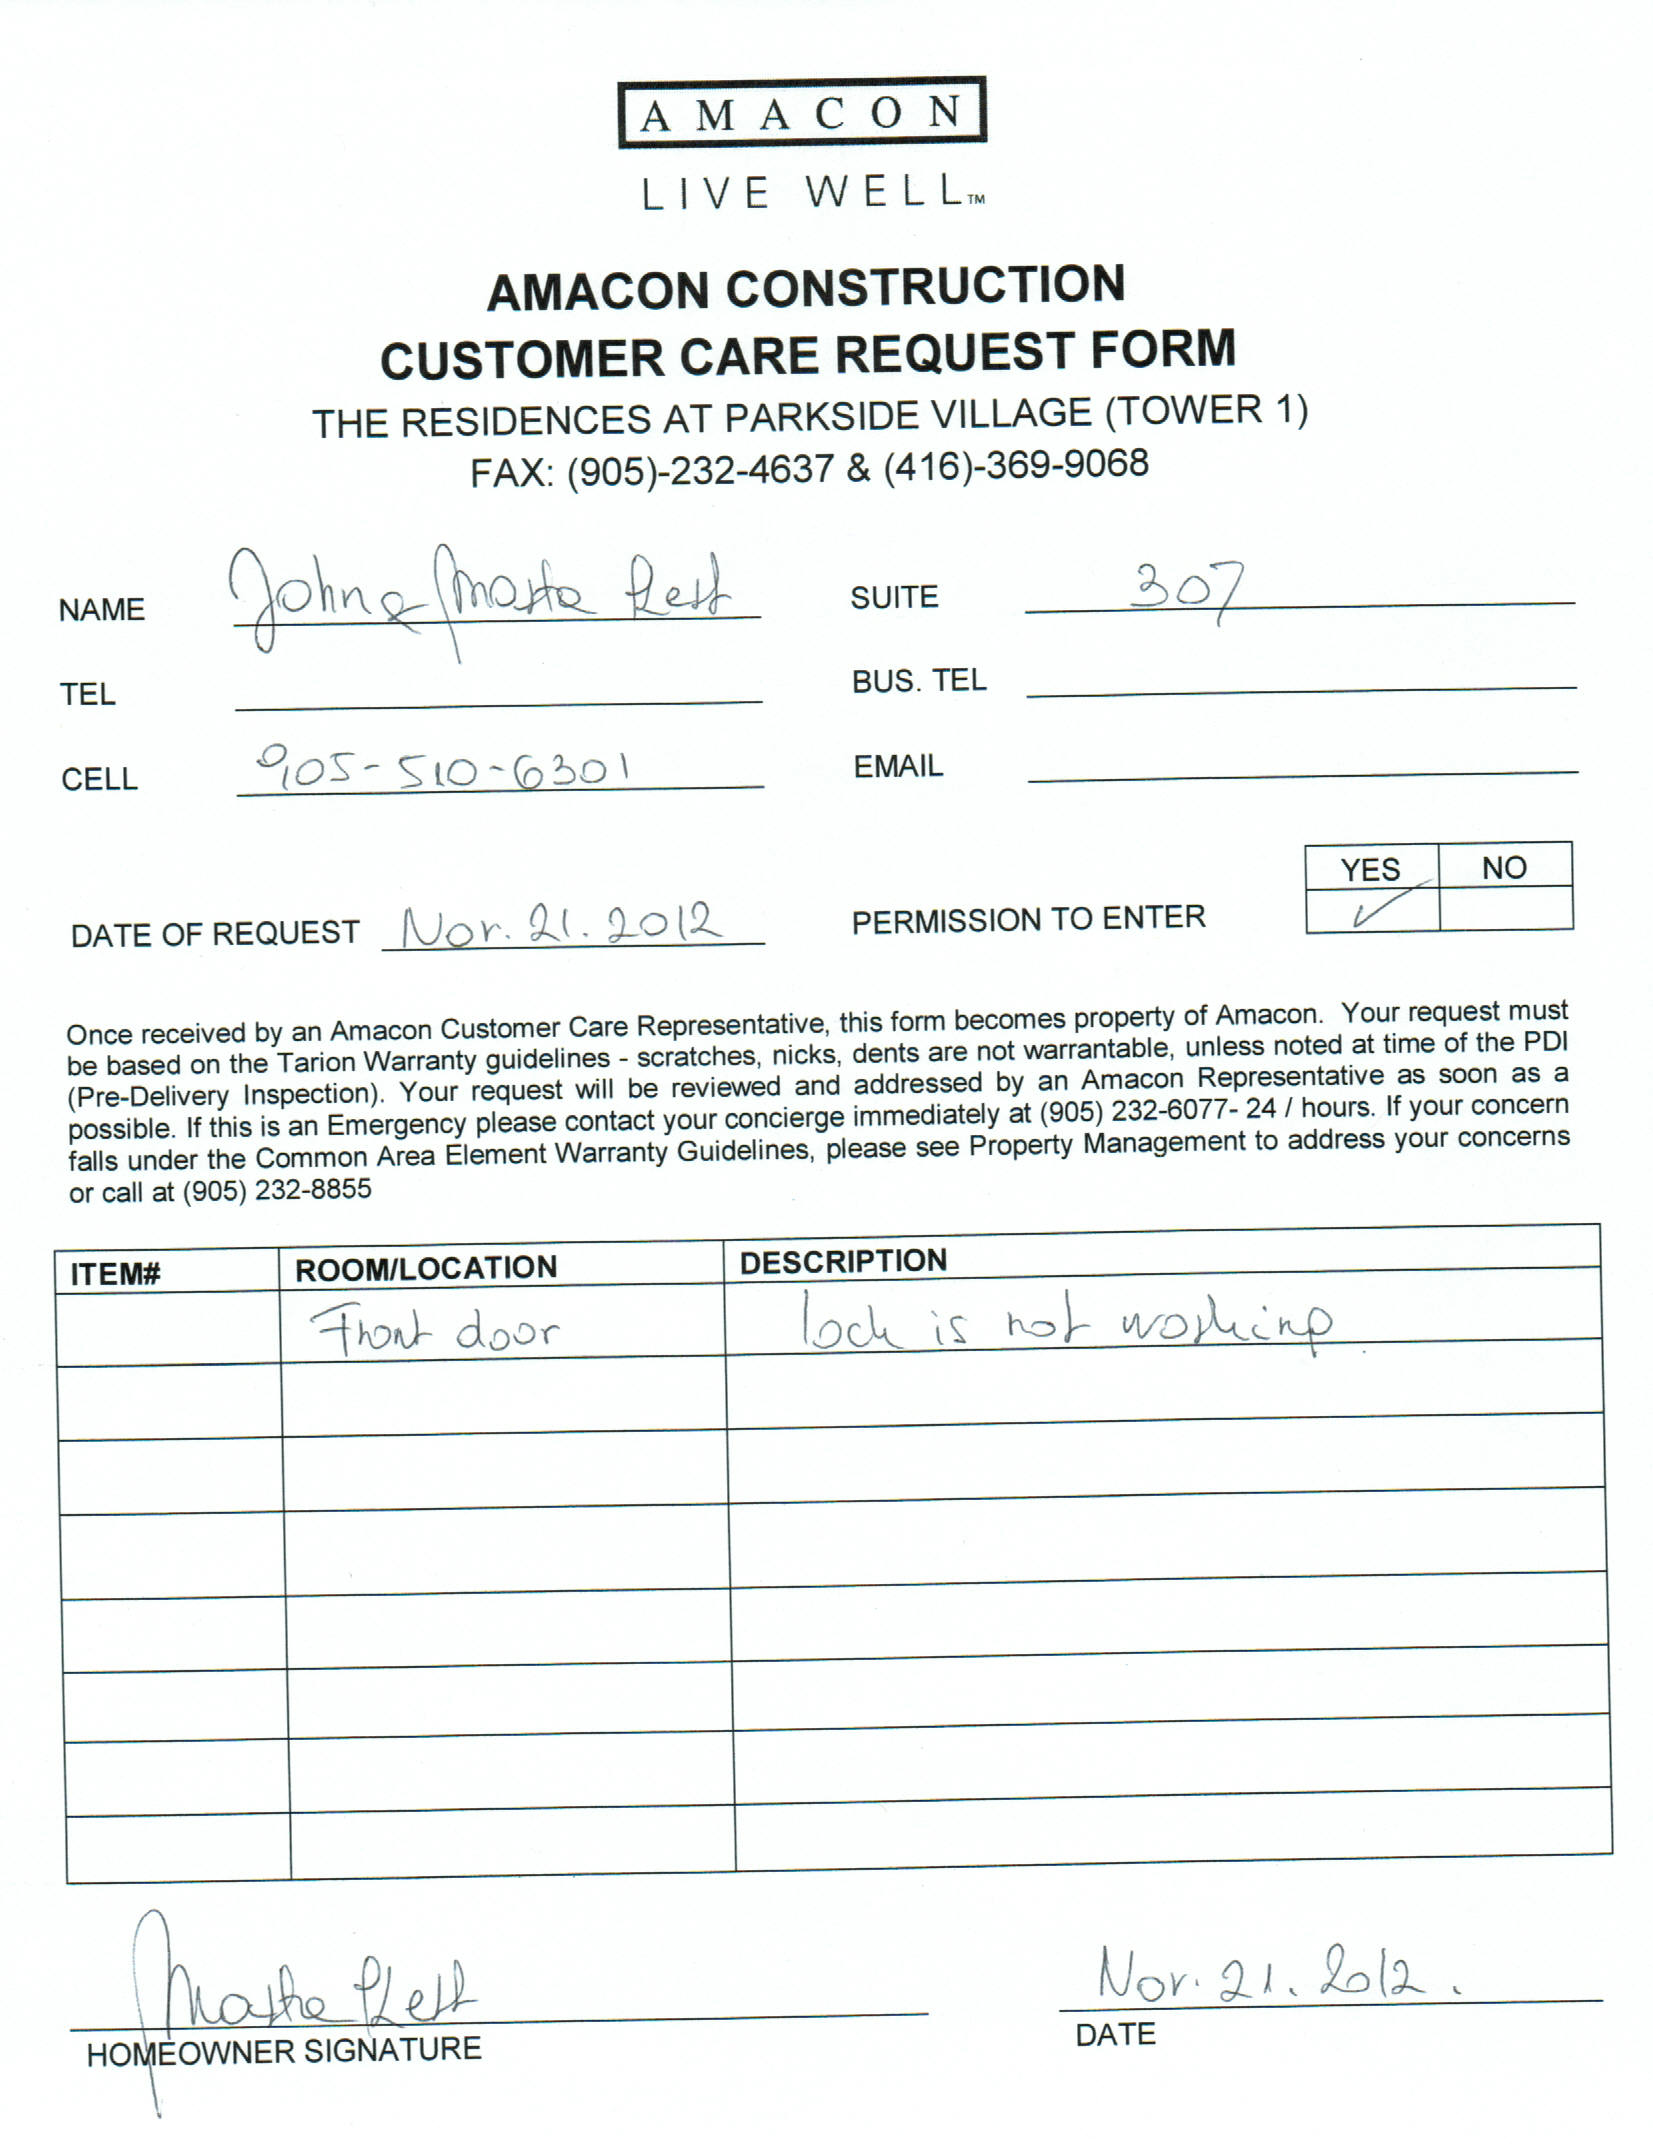 AMACON
LIVE WELL™
AMACON CONSTRUCTION
CUSTOMER CARE REQUEST FORM
THE RESIDENCES AT PARKSIDE VILLAGE (TOWER 1)
FAX: (905)-232-4637 & (416)-369-9068
NAME John & Marta SUITE 307
TEL BUS. TEL
CELL 905-510-6301 EMAIL
YES NO
DATE OF REQUEST Nov. 21. 2012 PERMISSION TO ENTER ✓
Once received by an Amacon Customer Care Representative, this form becomes property of Amacon. Your request must
be based on the Tarion Warranty guidelines - scratches, nicks, dents are not warrantable, unless noted at time of the PDI
(Pre-Delivery Inspection). Your request will be reviewed and addressed by an Amacon Representative as soon as a
possible. If this is an Emergency please contact your concierge immediately at (905) 232-6077- 24 / hours. If your concern
falls under the Common Area Element Warranty Guidelines, please see Property Management to address your concerns
or call at (905) 232-8855
ITEM# ROOM/LOCATION DESCRIPTION
Front door lock is not working.
Marta
HOMEOWNER SIGNATURE
Nov. 21. 2012.
DATE